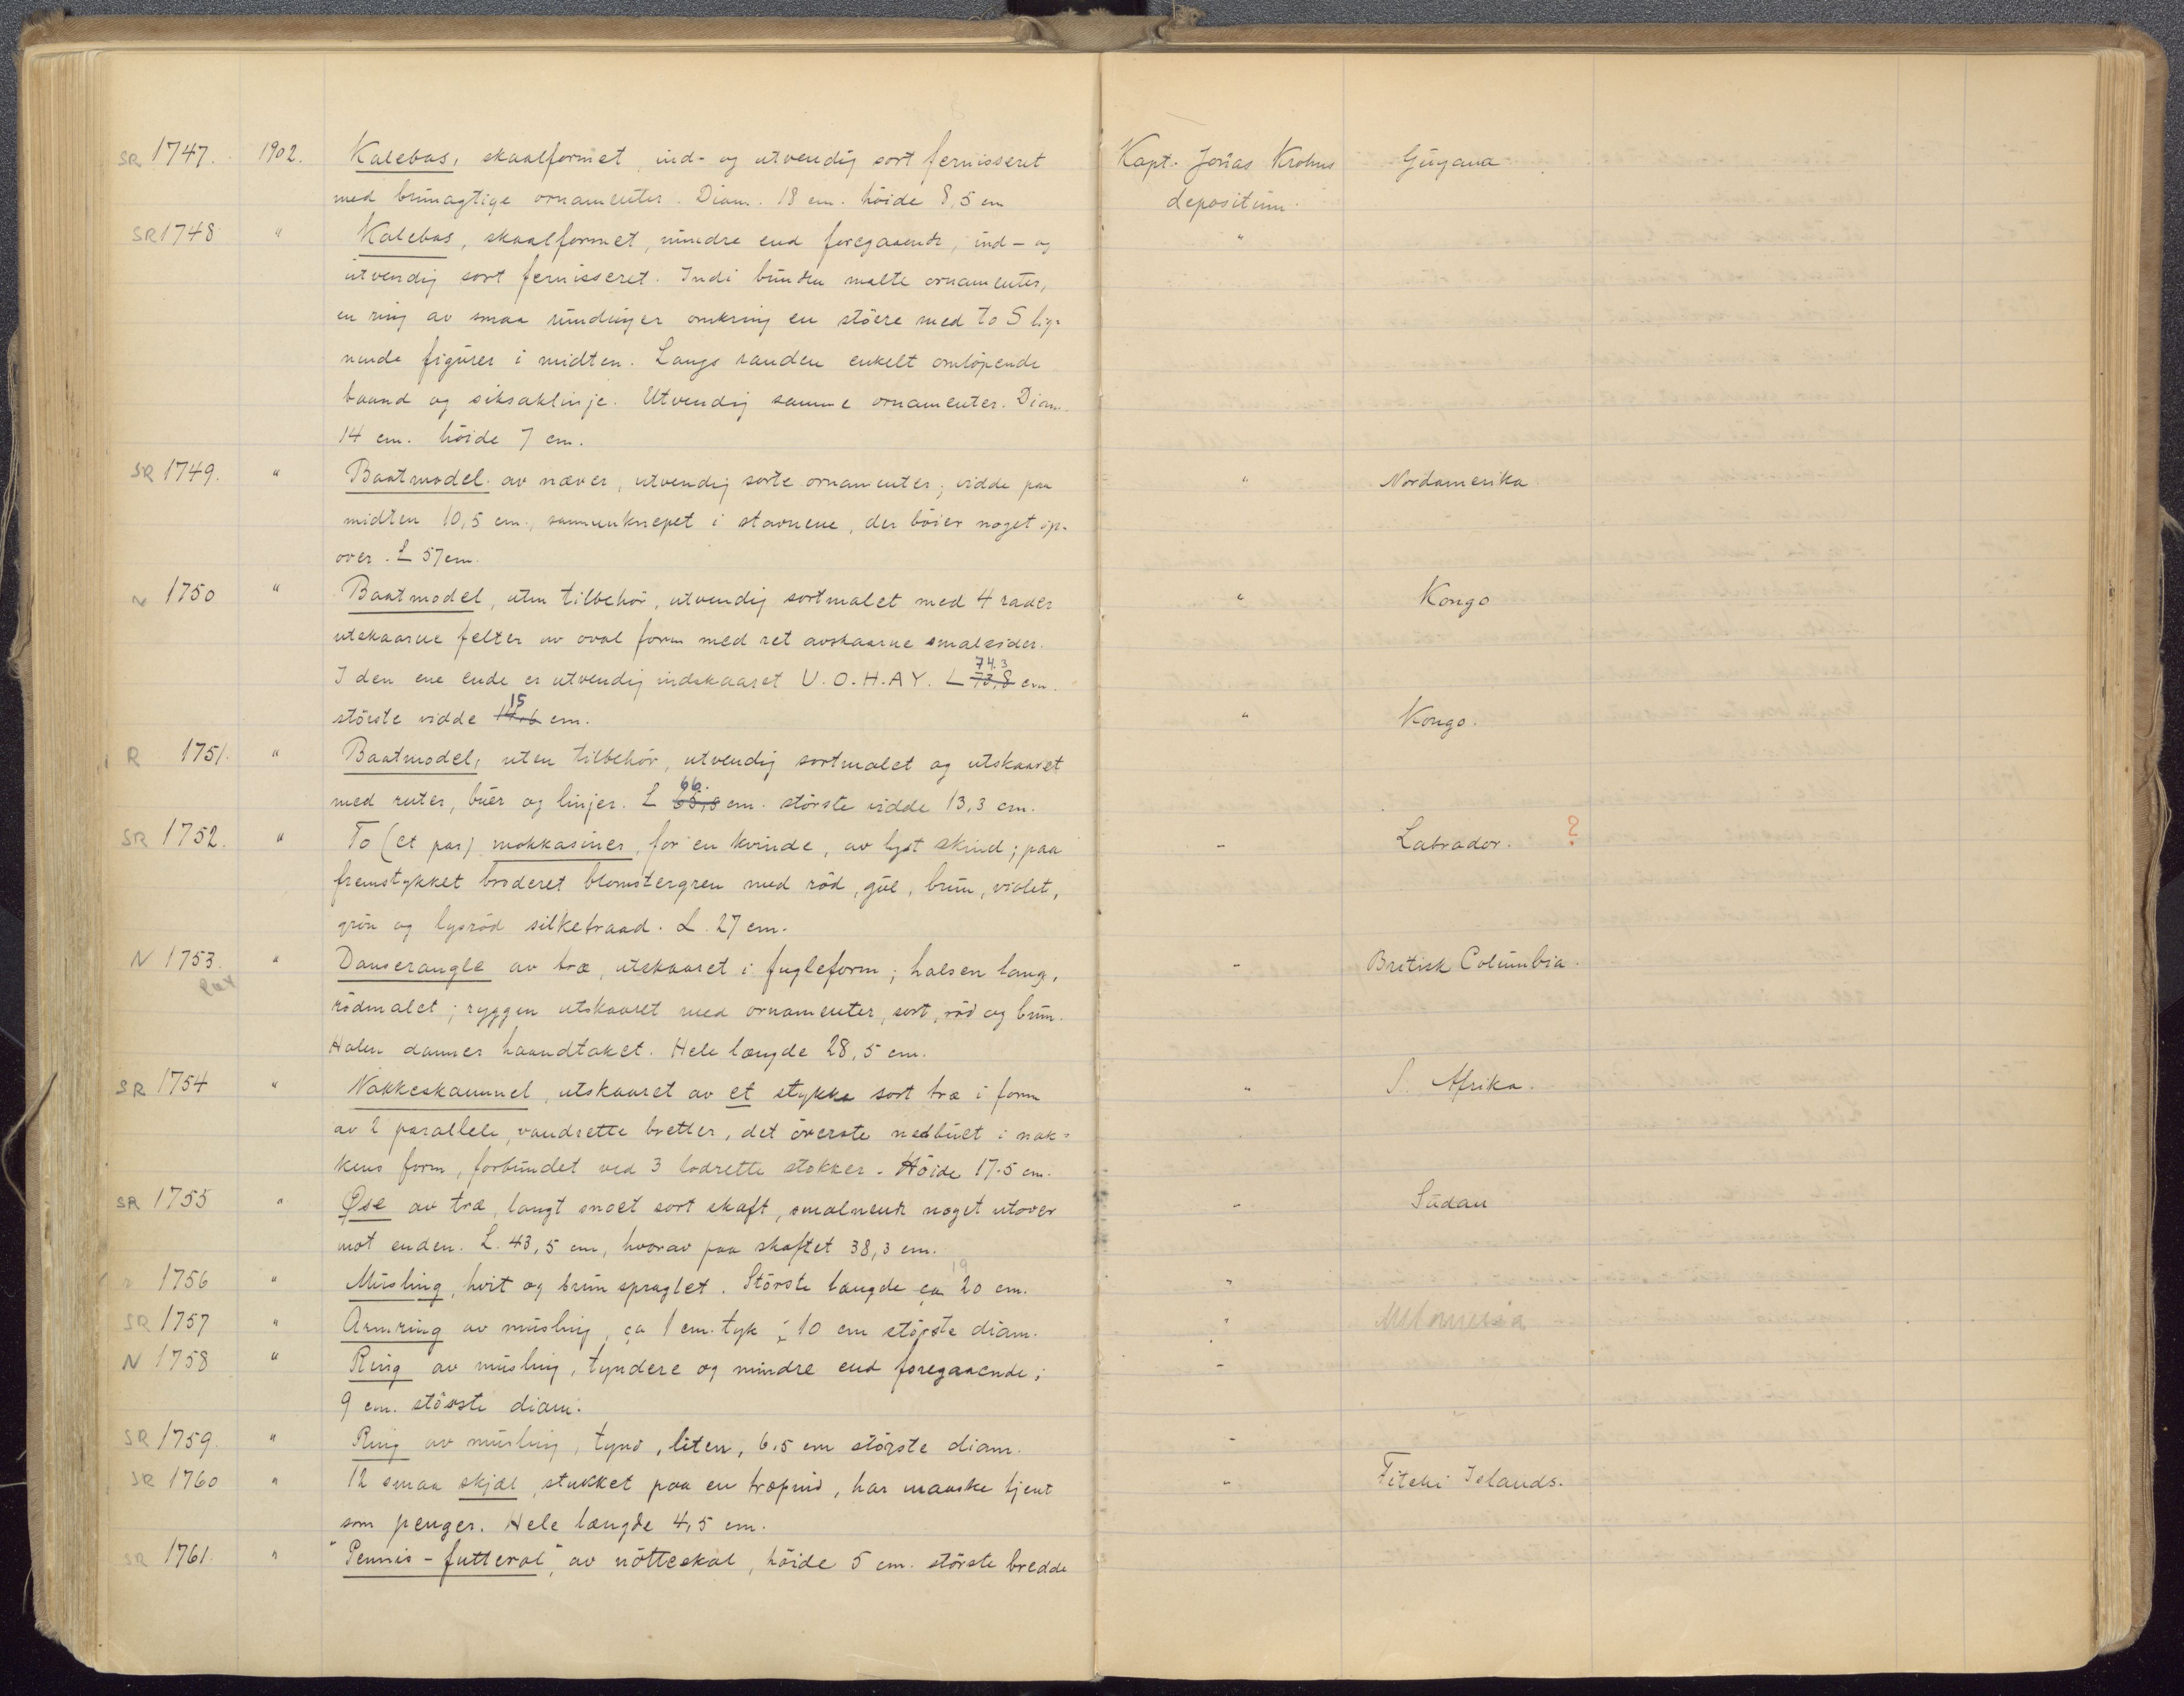 SR 1747. 1902. Kalebas, skaalformet, ind- og utvendig sort fernisseret Kapt. Jonas Krohns Guyana
med brunagtige ornamenter. Diam. 18 cm. höide 8,5 cm depositum.
SR 1748 " Kalebas, skaalformet, mindre end foregaaende, ind- og "
utvendig sort fernisseret. Indi bunden malte ornamenter,
en ring av smaa rundinger omkring en större med to S lig-
nende figurer i midten. Langs randen enkelt omlöpende
baand og siksaklinje. Utvendig samme ornamenter. Diam.
14 cm. höide 7 cm.
SR 1749. " Baatmodel av næver, utvendig sorte ornamenter; vidde paa " Nordamerika.
midten 10,5 cm., sammenknepet i stavnene, der böier noget op-
over. L 57 cm.
N 1750 " Baatmodel, uten tilbehör, utvendig sortmalet med 4 rader " Kongo
utskaarne felter av oval form med ret avskaarne smalsider.
I den ene ende er utvendig indskaaret U.O.H.AY. L 73,8 74.3 cm.
störste vidde 14,6 15 cm. " Kongo.
R 1751. " Baatmodel, uten tilbehör, utvendig sortmalet og utskaaret
med ruter, buer og linjer. L 65,8 66. cm. störste vidde 13,3 cm.
SR 1752. " To (et par) mokkasiner, for en kvinde, av lyst skind; paa " Labrador. ?
fremstykket broderet blomstergren med röd, gul, brun, violet,
grön og lysröd silketraad. L. 27 cm.
N 1753. " Danserangle av træ, utskaaret i fugleform; halsen lang, " British Columbia.
rödmalet; ryggen utskaaret med ornamenter, sort, röd og brun.
Halen danner haandtaket. Hele længde 28,5 cm.
SR 1754 " Nakkeskammel, utskaaret av et stykke sort træ i form " S. Afrika.
av 2 parallele, vandrette bretter, det överste nedbuet i nak-
kens form, forbundet ved 3 lodrette stokker. Höide 17.5 cm.
SR 1755 " Øse av træ, langt snoet sort skaft, smalnende noget utover " Sudan
mot enden. L. 43,5 cm, hvorav paa skaftet 38,3 cm.
1756 " Musling, hvit og brun spraglet. Störste længde ca 20 19 cm. "
SR 1757 " Armring av musling, ca 1 cm. tyk; 10 cm störste diam. " Melanesia
N 1758 " Ring av musling, tyndere og mindre end foregaaende; "
9 cm. störste diam.
SR 1759. " Ring av musling, tynd, liten, 6,5 cm störste diam. "
SR 1760 " 12 smaa skjæl, stukket paa en træpind, har maaske tjent " Fitchi Islands.
som penger. Hele længde 4,5 cm.
SR 1761. " "Pennis-futteral", av nötteskal, höide 5 cm. störste bredde